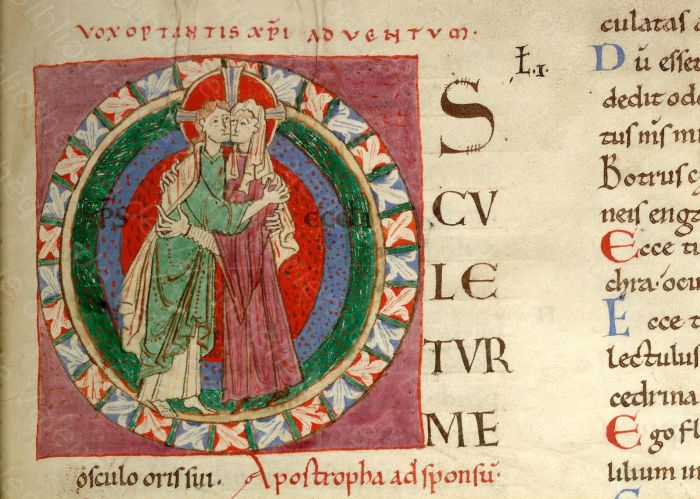 VOX OPTANTIS XPI ADVENTUM.
O
S
CV
LE
TVR
ME
osculo oris sui. Apostropha ad sponsū.
culatas
Dū esse
dedit odo
tus m̅s
Botrus
neis eng
Ecce tu
chra· ocu
Ecce t
lectulus
cedrina
Ego fl
lilium in